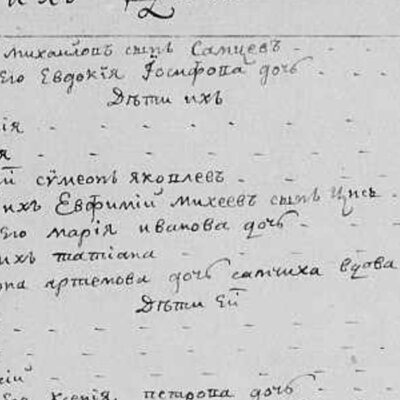 михаиловъ сынъ Самцевъ
его Евдокія Іѡсифова дочь
Дѣти ихъ
ія
я
ій сѷмеонъ яковлевъ
ихъ Евфимій михеевъ сынъ
его марія иванова дочь
ихъ татіана
артемова дочь самчиха вдова
Дѣти ей
ій
его Ксенія петрова дочь